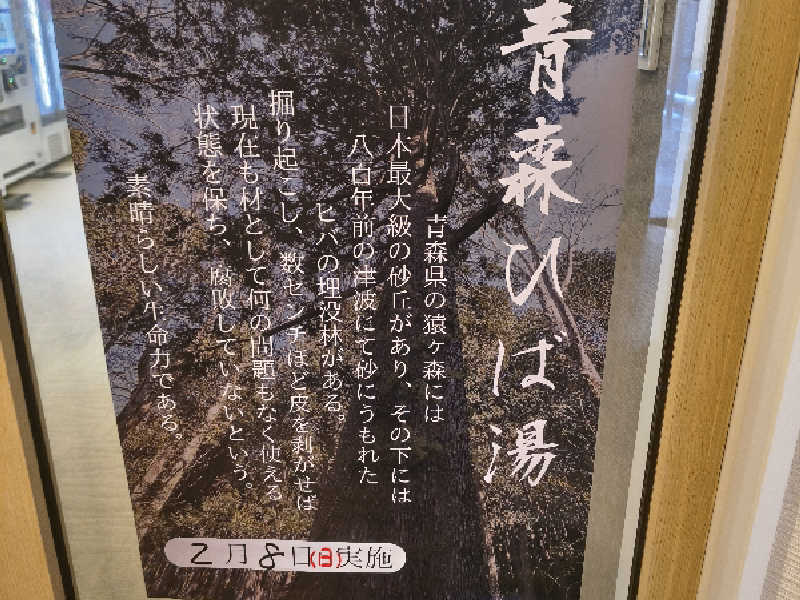 青森ひば湯
青森県の猿ヶ森には
日本最大級の砂丘があり、その下には
八百年前の津波にて砂にうもれた
ヒバの埋没林がある。
掘り起こし、数センチほど皮を剥がせば
現在も材として何の問題もなく使える
状態を保ち、腐敗していないという。
素晴らしい生命力である。
2月8日(日)実施